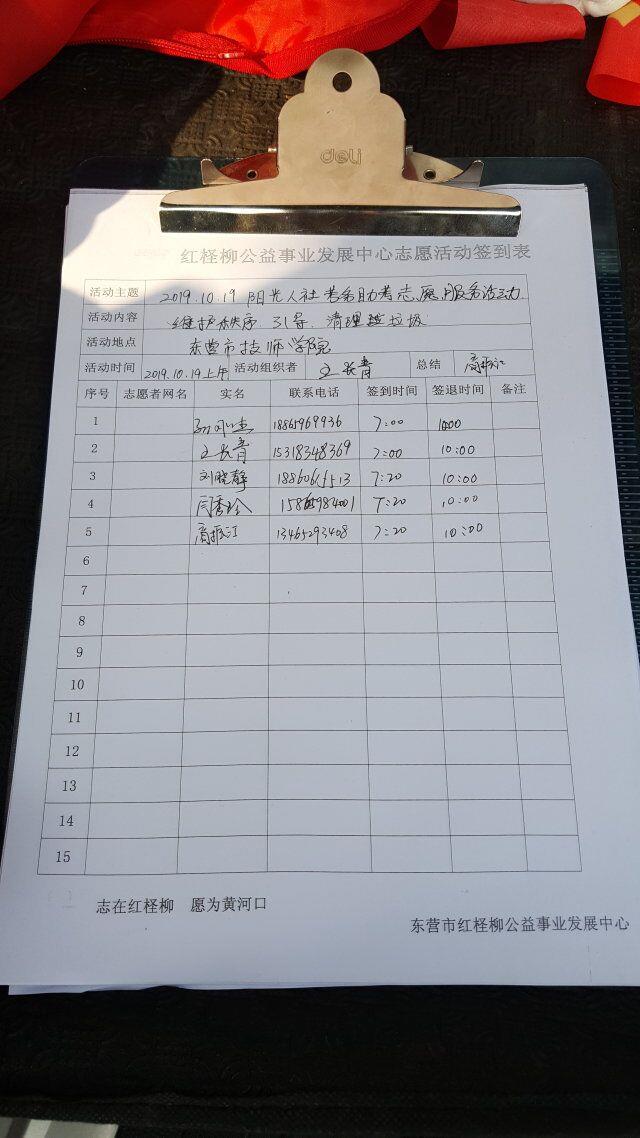 deli
红柽柳公益事业发展中心志愿活动签到表
活动主题 2019.10.19 阳光人社 考务助考志愿服务活动
活动内容 维护秩序 引导 清理 垃圾
活动地点 东营市技师学院
活动时间 2019.10.19上午 活动组织者 王长青 总结 商振江
序号 志愿者网名 实名 联系电话 签到时间 签退时间 备注
1 18865969936 7:00 10:00
2 王长青 15318348369 7:00 10:00
3 刘晓静 7:20 10:00
4 闫秀玲 7:20 10:00
5 商振江 13465293408 7:20 10:00
6
7
8
9
10
11
12
13
14
15
志在红柽柳 愿为黄河口
东营市红柽柳公益事业发展中心